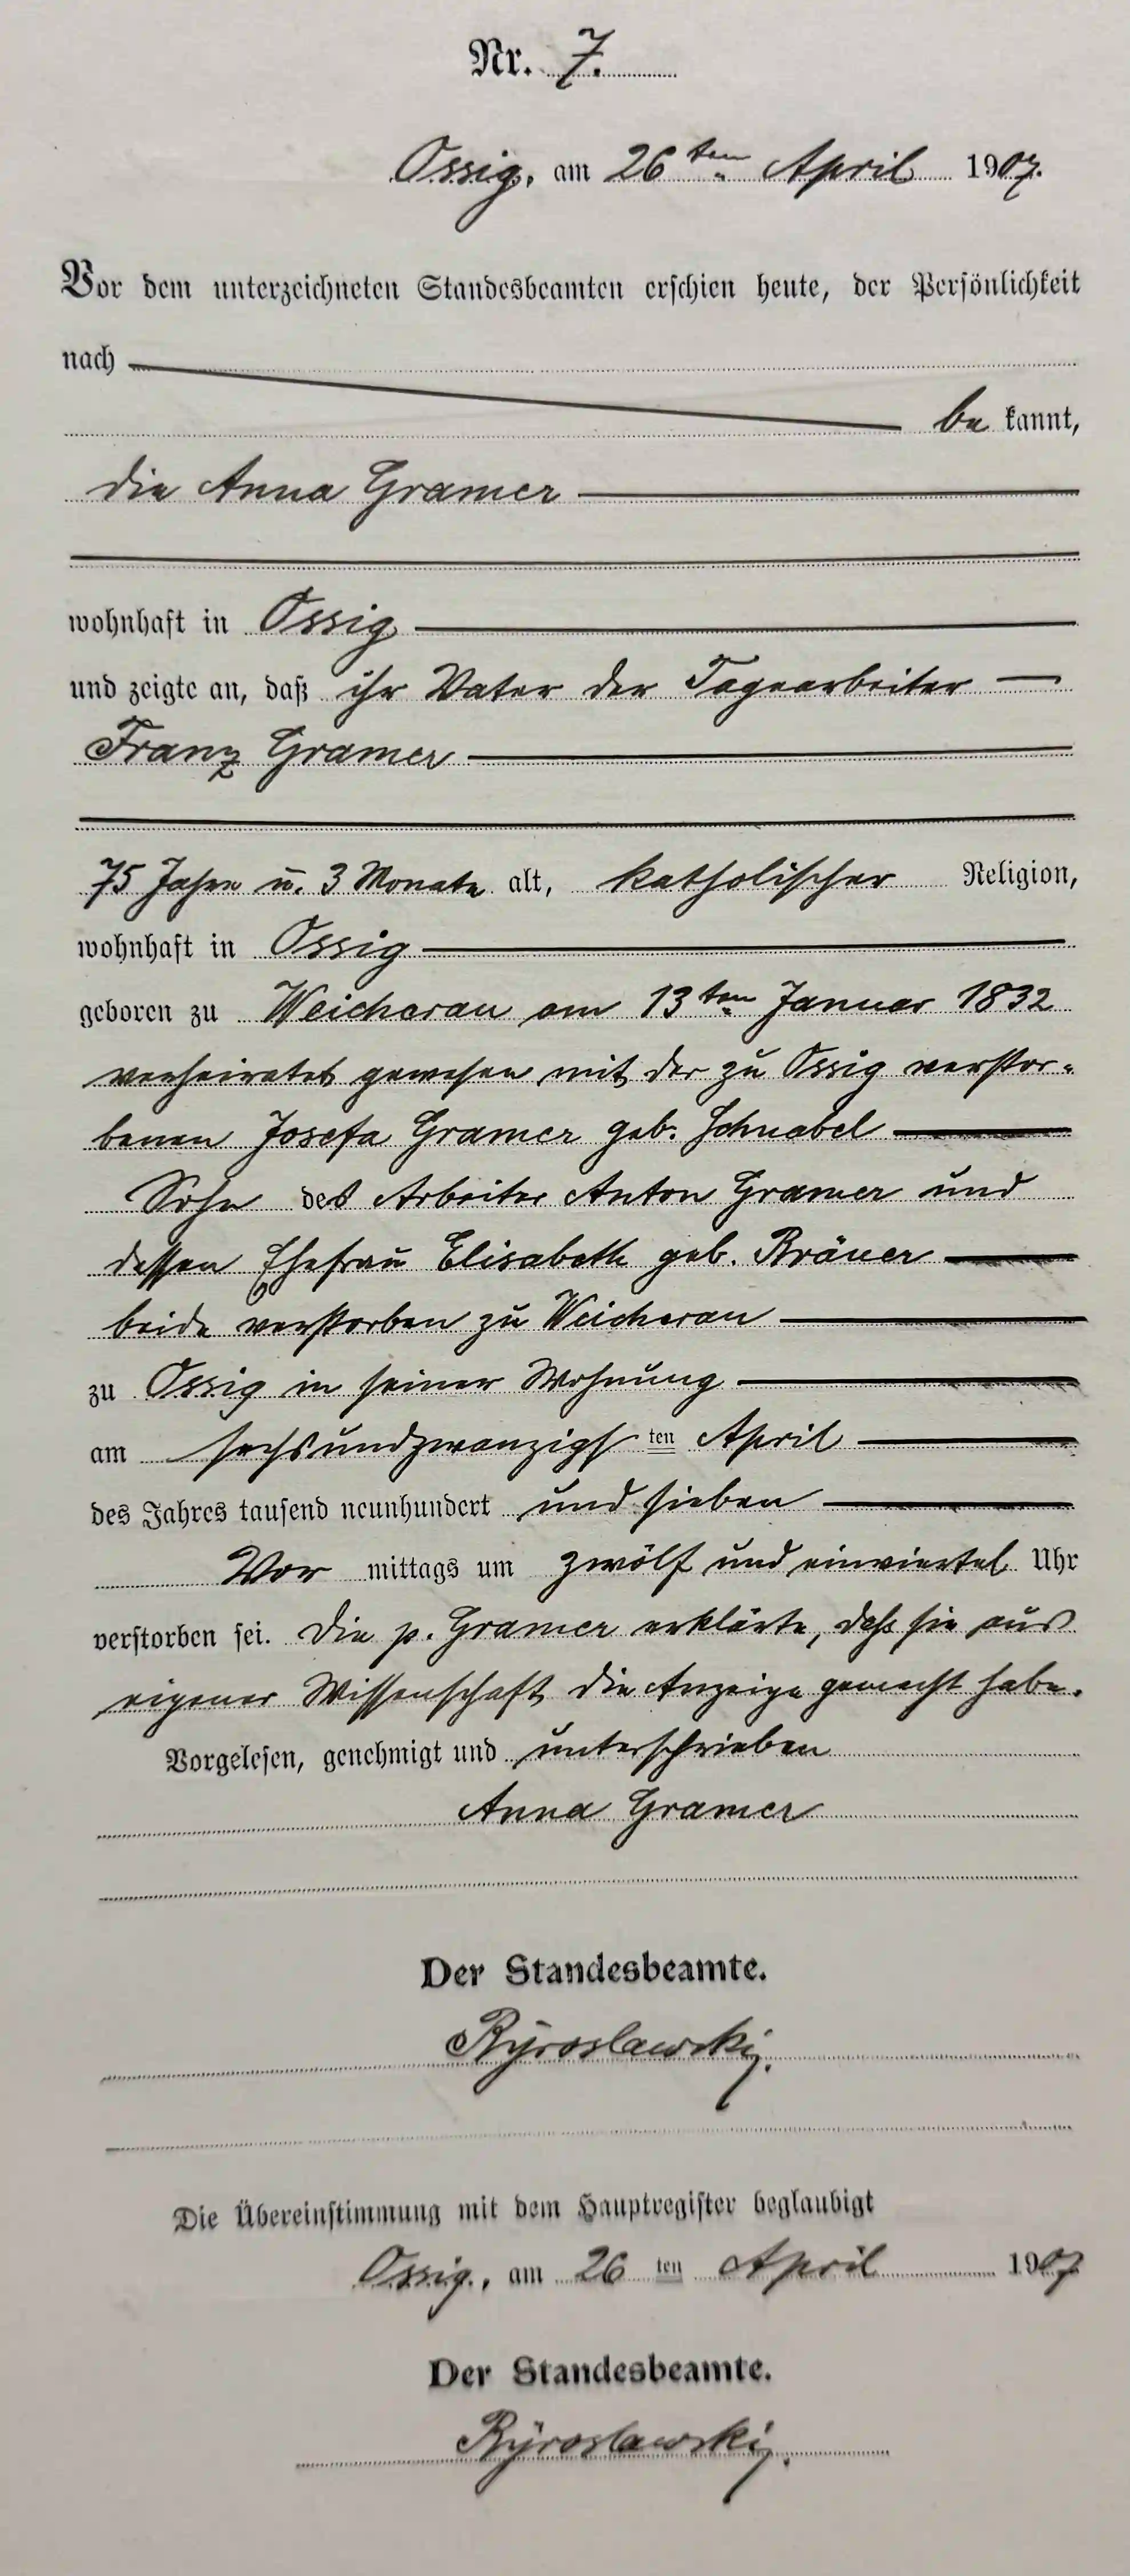 Nr. 7.
Ossig, am 26ten April 1907.
Vor dem unterzeichneten Standesbeamten erschien heute, der Persönlichkeit
nach
be kannt,
die Anna Gramer
wohnhaft in Ossig
und zeigte an, daß ihr Vater der Tagearbeiter
Franz Gramer
75 Jahre u. 3 Monate alt, katholischer Religion,
wohnhaft in Ossig
geboren zu Weicherau am 13ten Januar 1832
verheiratet gewesen mit der zu Ossig verstor-
benen Josefa Gramer geb. Schnabel
Sohn des Arbeiter Anton Gramer und
dessen Ehefrau Elisabeth geb. Bräuer
beide verstorben zu Weicherau
zu Ossig in seiner Wohnung
am sechsundzwanzigsten April
des Jahres tausend neunhundert und sieben
Vor mittags um zwölf und einviertel Uhr
verstorben sei. Die p. Gramer erklärte, daß sie aus
eigener Wissenschaft die Anzeige gemacht habe.
Vorgelesen, genehmigt und unterschrieben
Anna Gramer
Der Standesbeamte.
Die Übereinstimmung mit dem Hauptregister beglaubigt
Ossig, am 26 ten April 1907
Der Standesbeamte.